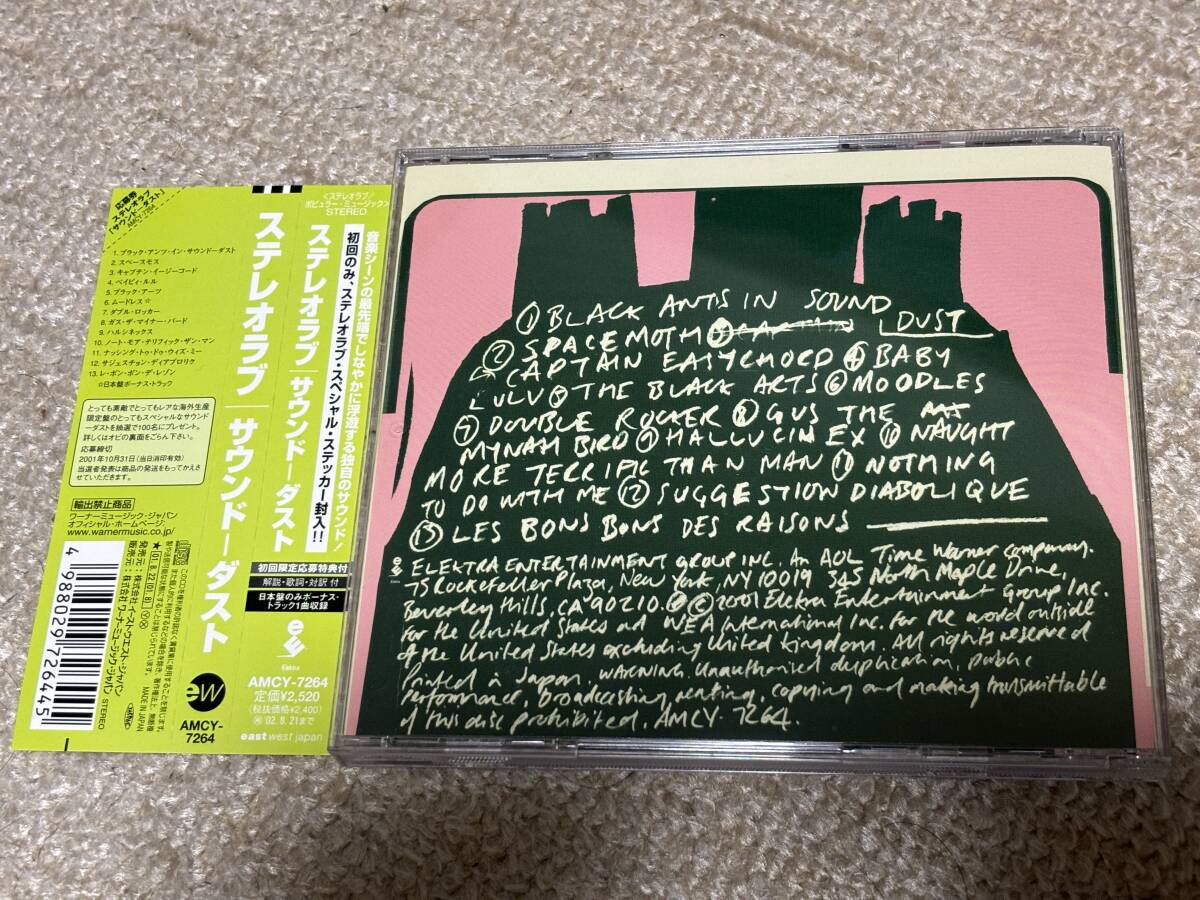 応募券
ステレオラブ
「サウンドーダスト」
AMCY-7264
1. ブラック・アンツ・イン・サウンドーダスト
2. スペースモス
3. キャプテン・イージーコード
4. ベイビィ・ルル
5. ブラック・アーツ
6. ムードレス☆
7. ダブル・ロッカー
8. ガス・ザ・マイナー・バード
9. ハルシネックス
10. ノート・モア・テリフィック・ザン・マン
11. ナッシング・トゥ・ドゥ・ウィズ・ミー
12. サジェスチョン・ディアブロリク
13. レ・ボン・ボン・デ・レゾン
☆日本盤ボーナス・トラック
とっても素敵でとってもレアな海外生産
限定盤のとってもスペシャルなサウンド
ーダストを抽選で100名にプレゼント。
詳しくはオビの裏面をごらん下さい。
応募締切
2001年10月31日(当日消印有効)
当選者発表は商品の発送をもってかえさ
せていただきます。
輸出禁止商品
ワーナーミュージック・ジャパン
オフィシャル・ホームページ:
www.warnermusic.co.jp
4 988029 726445
発売元:株式会社イーストウエスト・ジャパン
販売元:株式会社ワーナーミュージック・ジャパン
★01.8.22(01.8)
MADE IN JAPAN
STEREO
ew
AMCY-
7264
ステレオラブ サウンドーダスト
<ステレオラブ/
ポピュラー・ミュージック>
STEREO
ステレオラブ サウンドーダスト
音楽シーンの最先端でしなやかに浮遊する独自のサウンド!
初回のみ、ステレオラブ・スペシャル・ステッカー封入!!
初回限定応募特典付
解説・歌詞・対訳 付
日本盤のみボーナス・
トラック1曲収録
Elektra
AMCY-7264
定価¥2,520
(税抜価格¥2,400)
'02.8.21まで
eastwest japan
① BLACK ANTS IN SOUND
DUST
② SPACEMOTH ③
CAPTAIN EASYCHORD ④ BABY
LULU ⑤ THE BLACK ARTS ⑥ MOODLES
⑦ DOUBLE ROCKER ⑧ GUS THE
MYNAH BIRD ⑨ HALLUCINEX ⑩ NAUGHT
MORE TERRIFIC THAN MAN ⑪ NOTHING
TO DO WITH ME ⑫ SUGGESTION DIABOLIQUE
⑬ LES BONS BONS DES RAISONS
ELEKTRA ENTERTAINMENT GROUP INC. An AOL Time Warner company.
75 Rockefeller Plaza, New York, NY 10019 345 North Maple Drive,
Beverley Hills, CA 90210. ℗ © 2001 Elektra Entertainment Group Inc.
for the United States and WEA International Inc. for the world outside
of the United States excluding United Kingdom. All rights reserved
Printed in Japan. WARNING. Unauthorised duplication, public
Performance, Broadcasting, renting, copying and making transmittable
of this disc prohibited. AMCY-7264.